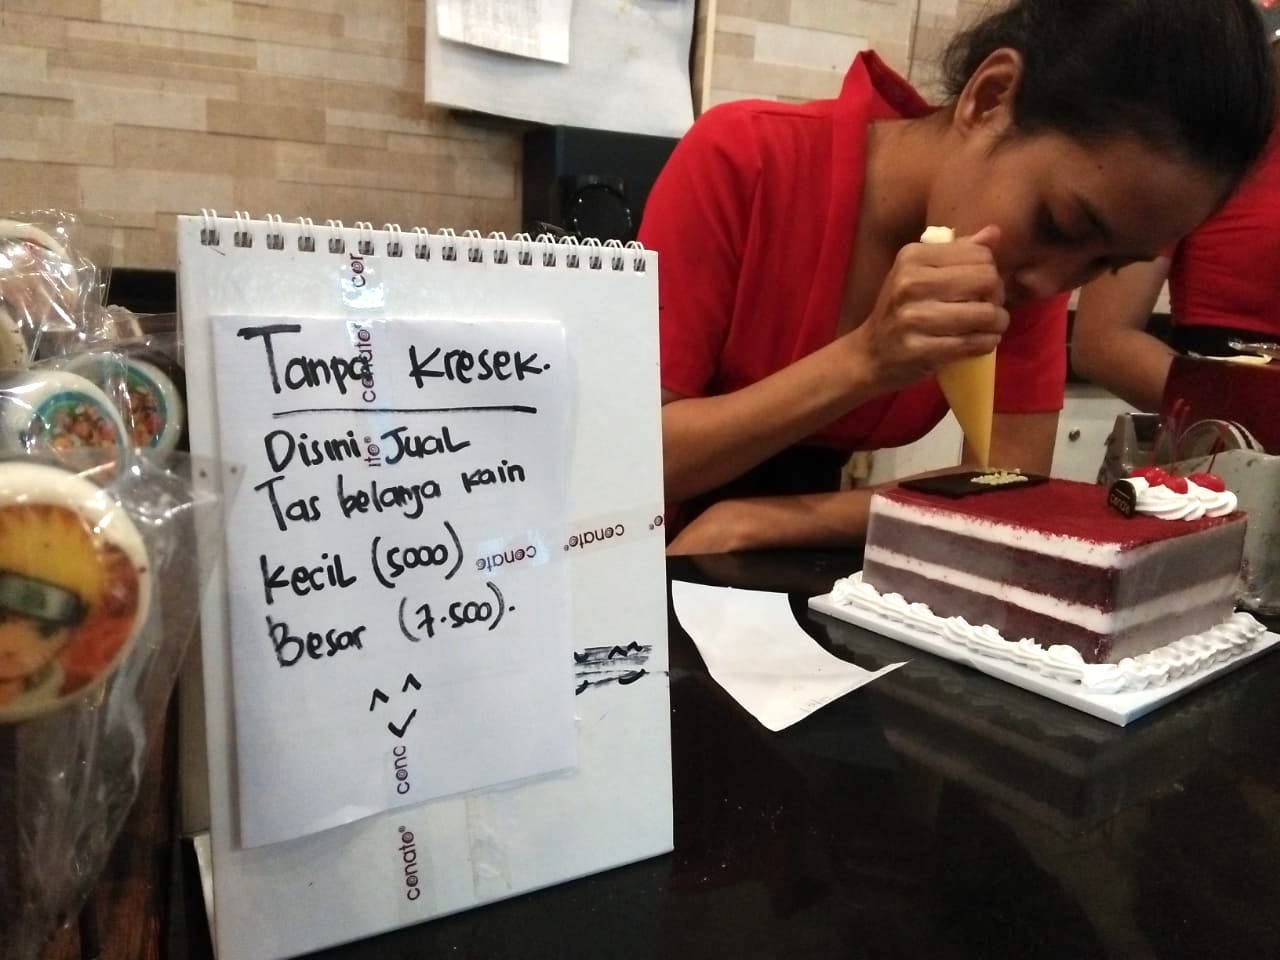 Tanpa Kresek.
Disini Jual
Tas belanja kain
Kecil (5000)
Besar (7.500).
conato
conato
conato
conato
conato